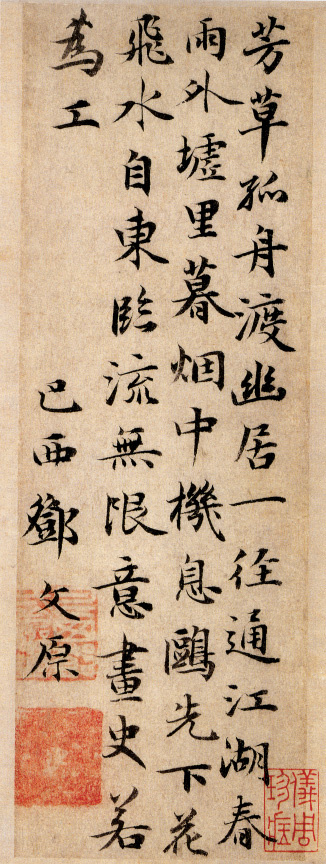 芳草孤舟渡幽居一径通江湖春
雨外墟里暮烟中機息鷗先下花
飛水自東臨流無限意畫史若
為工
巴西鄧文原
儀周
珍藏